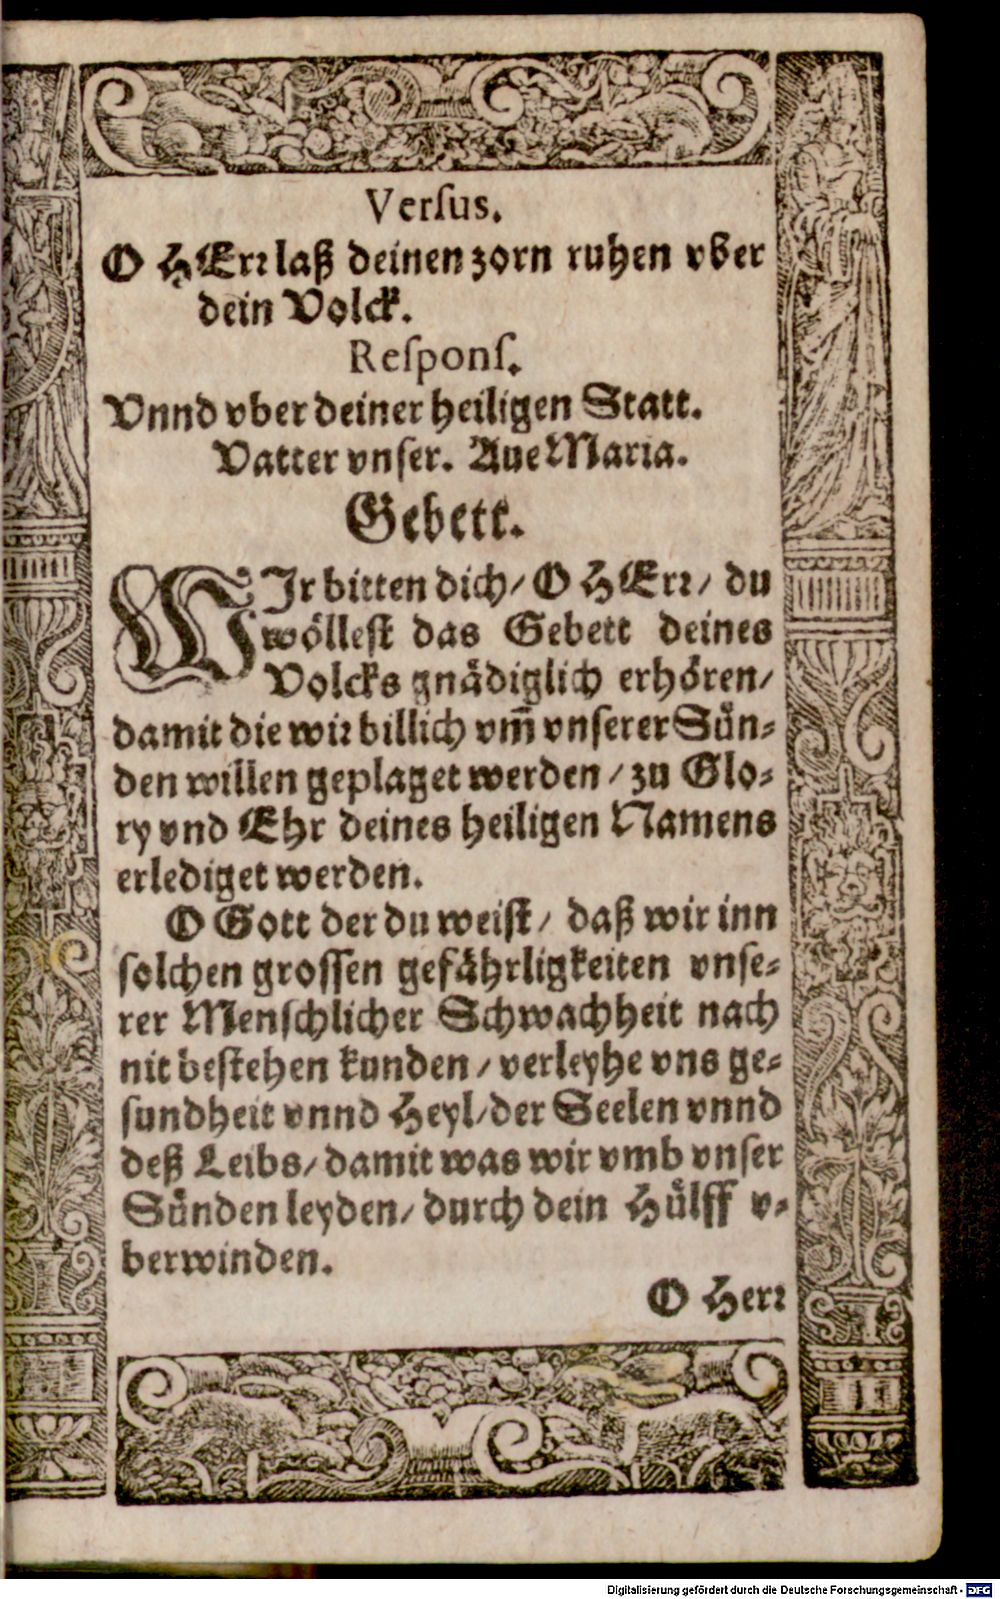 Versus.
O HErr laß deinen zorn ruhen vber
dein Volck.
Respons.
Vnnd vber deiner heiligen Statt.
Vatter vnser. Aue Maria.
Gebett.
WIr bitten dich/ O HErr/ du
wöllest das Gebett deines
Volcks gnädiglich erhören/
damit die wir billich vm̃ vnserer Sün-
den willen geplaget werden/ zu Glo-
ry vnd Ehr deines heiligen Namens
erlediget werden.
O Gott der du weist/ daß wir inn
solchen grossen gefährligkeiten vnse-
rer Menschlicher Schwachheit nach
nit bestehen kunden/ verleyhe vns ge-
sundheit vnnd Heyl/ der Seelen vnnd
deß Leibs/ damit was wir vmb vnser
Sünden leyden/ durch dein Hülff v-
berwinden.
O Herr
Digitalisierung gefördert durch die Deutsche Forschungsgemeinschaft - DFG